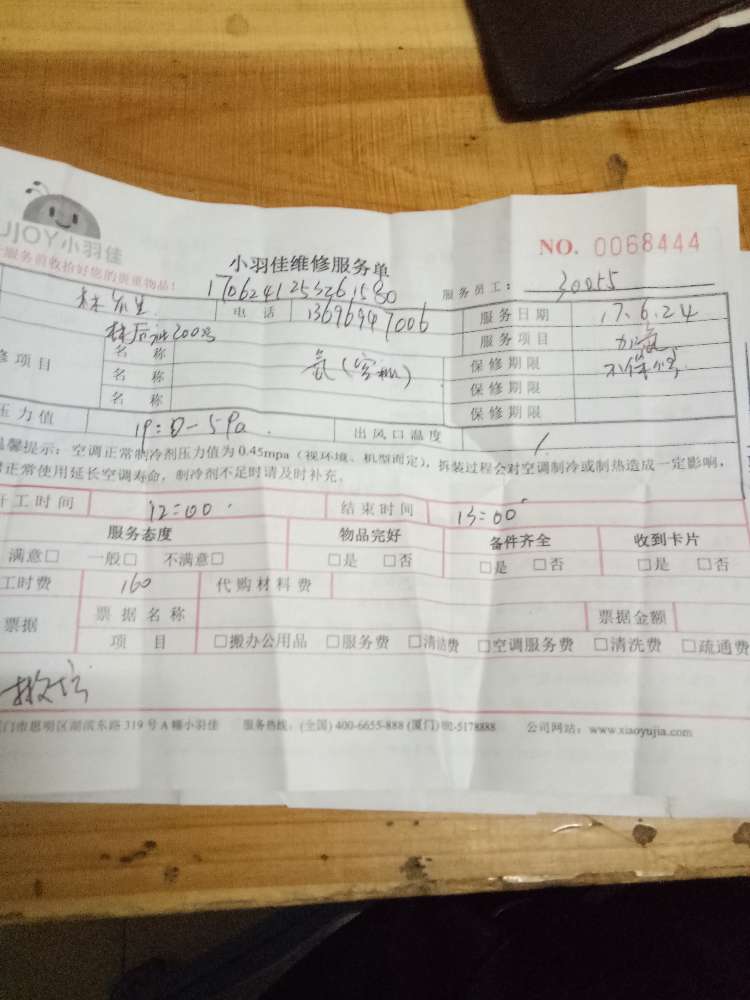 UJOY小羽佳
服务前收拾好您的贵重物品!
小羽佳维修服务单
NO. 0068444
1706241253261580
服务员工: 30055
电话 13696947006 服务日期 17.6.24
服务项目 加氟
名称 氟(空调) 保修期限 不保修
修项目 名称 保修期限
名称 保修期限
压力值 1P: 0-5Pa 出风口温度 /
温馨提示: 空调正常制冷剂压力值为0.45mpa (视环境、机型而定), 拆装过程会对空调制冷或制热造成一定影响,
正常使用延长空调寿命, 制冷剂不足时请及时补充。
开工时间 12:00 结束时间 13:00
服务态度 物品完好 备件齐全 收到卡片
满意□ 一般□ 不满意□ □是 □否 □是 □否 □是 □否
工时费 160 代购材料费
票据 票据名称 票据金额
项目 □搬办公用品 □服务费 □清洁费 □空调服务费 □清洗费 □疏通费
门市思明区湖滨东路319号A幢小羽佳 服务热线: (全国) 400-6655-888 (厦门) 592-5178888 公司网站: www.xiaoyujia.com